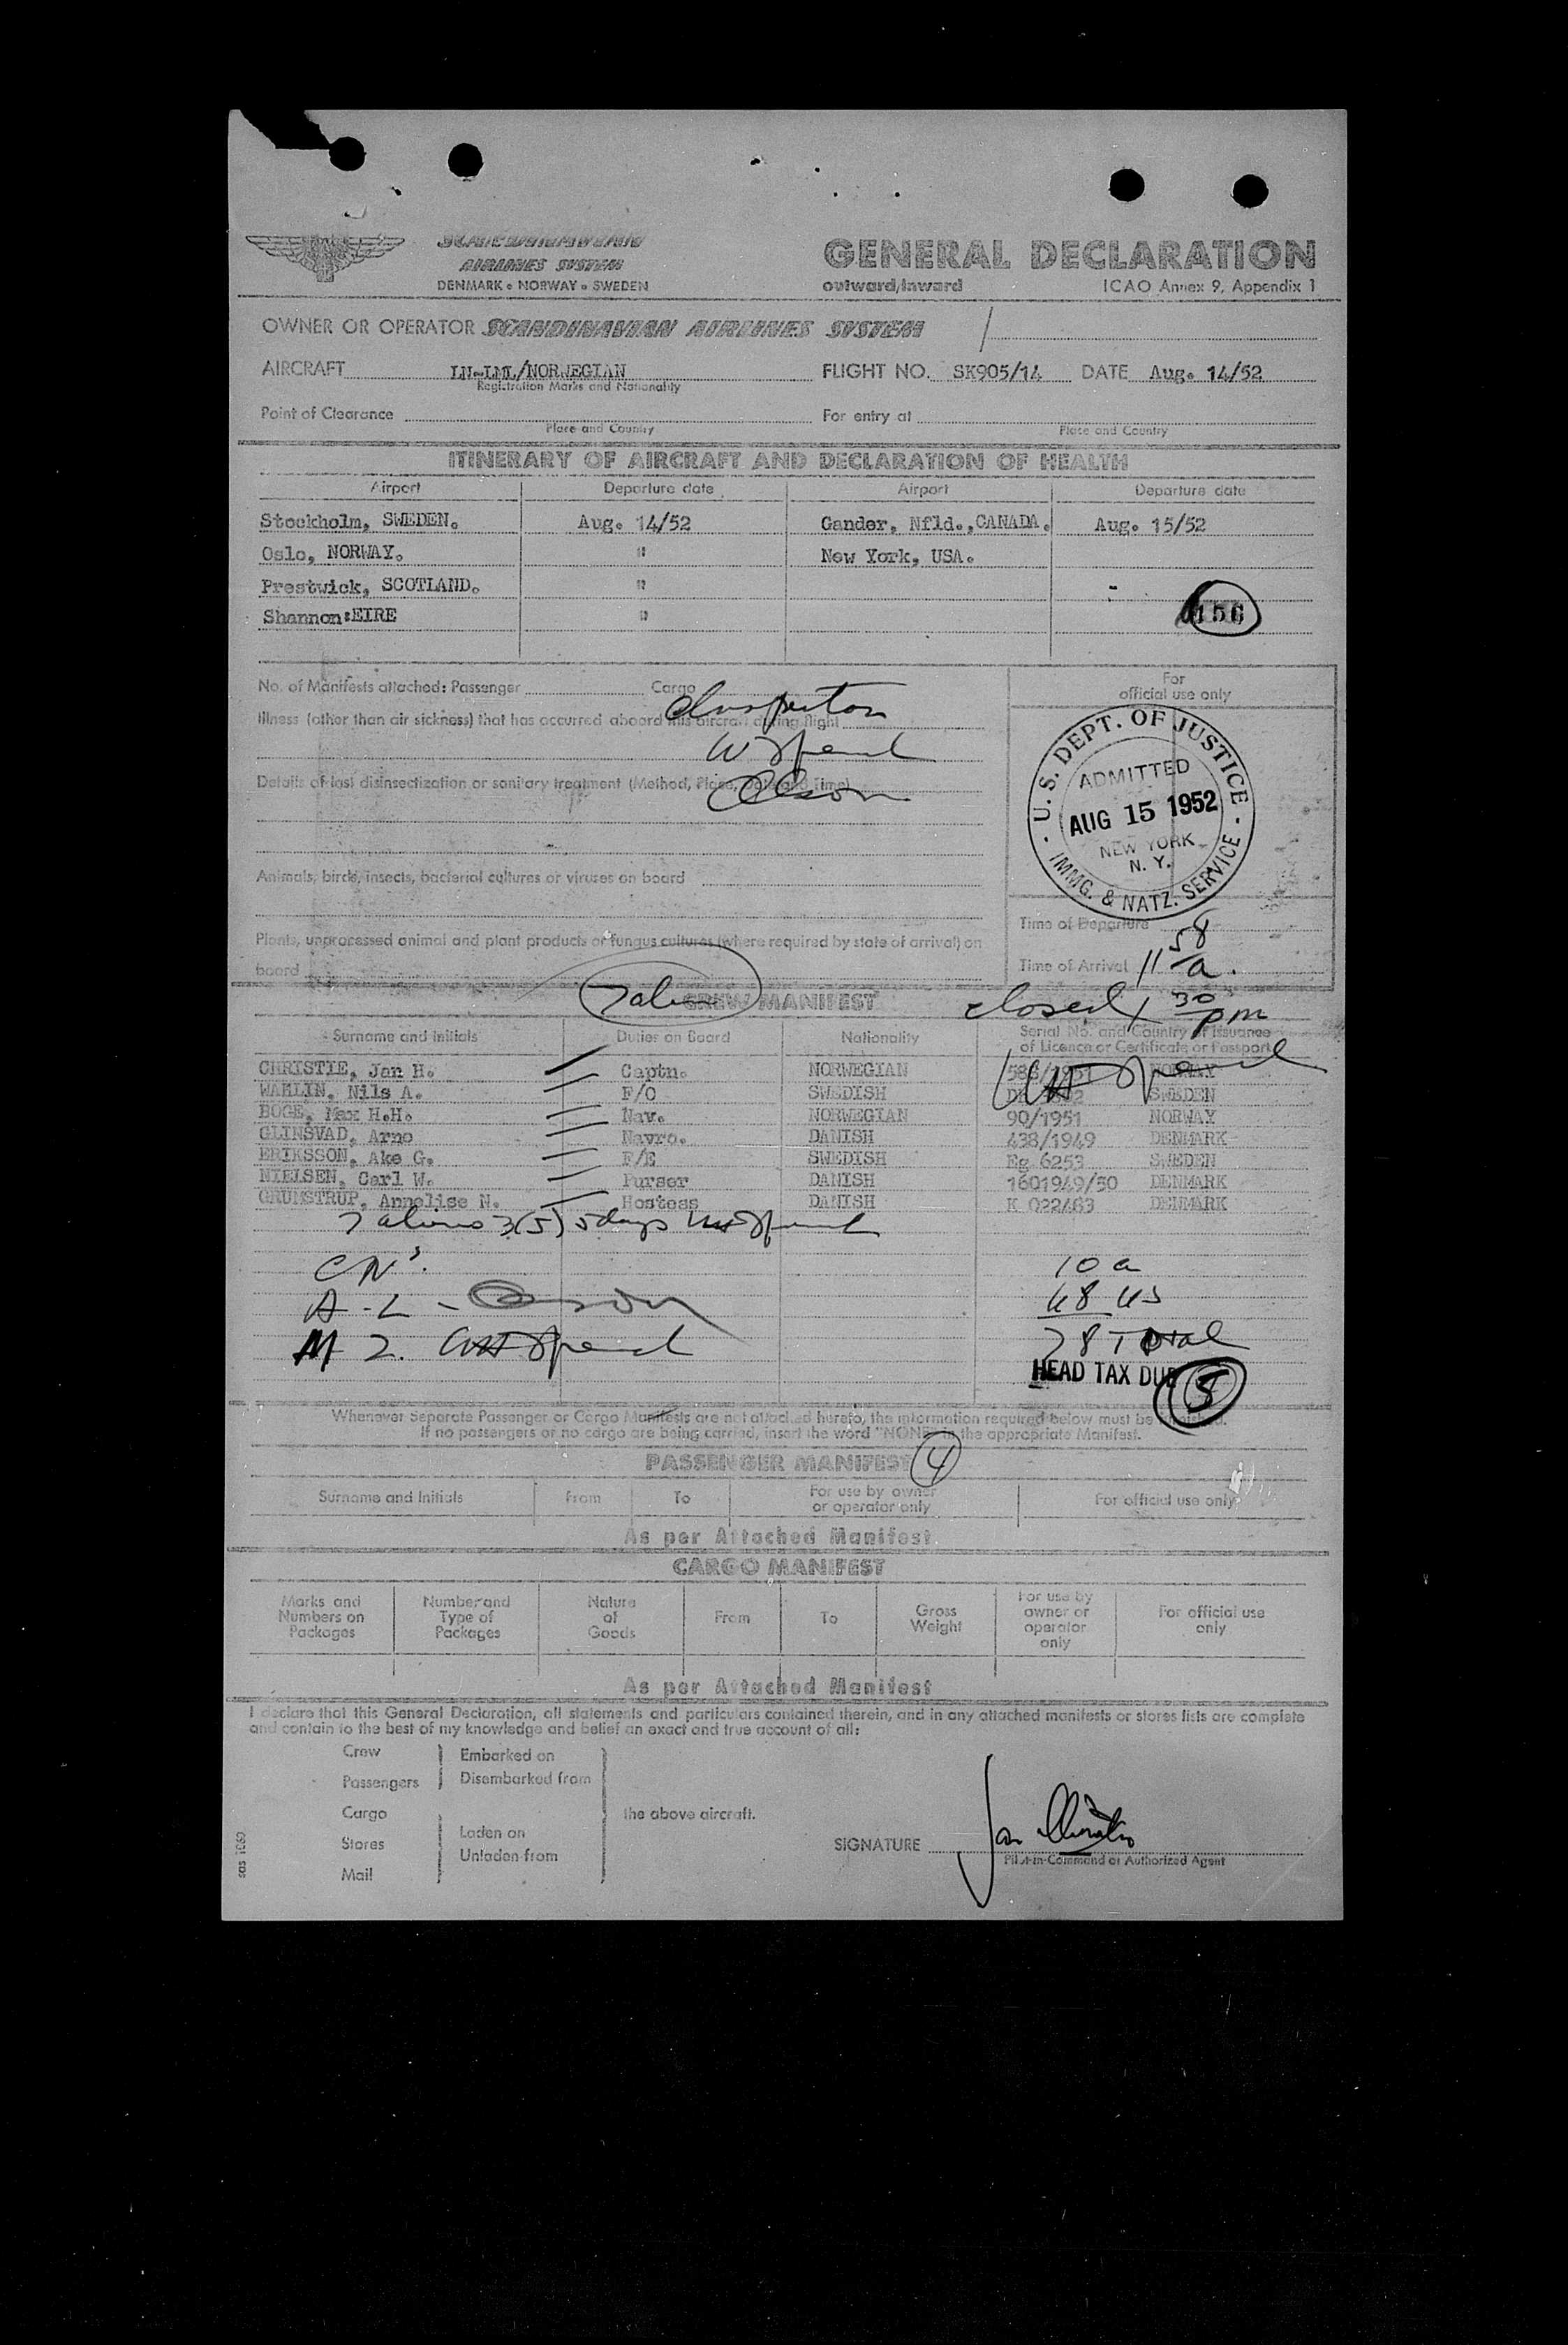 SCANDINAVIAN
AIRLINES SYSTEM
DENMARK • NORWAY • SWEDEN
GENERAL DECLARATION
outward/inward ICAO Annex 9, Appendix 1
OWNER OR OPERATOR SCANDINAVIAN AIRLINES SYSTEM /
AIRCRAFT LN-LML/NORWEGIAN FLIGHT NO. SK905/14 DATE Aug. 14/52
Registration Marks and Nationality
Point of Clearance For entry at
Place and Country Place and Country
ITINERARY OF AIRCRAFT AND DECLARATION OF HEALTH
Airport Departure date Airport Departure date
Stockholm, SWEDEN. Aug. 14/52 Gander, Nfld.,CANADA. Aug. 15/52
Oslo, NORWAY. " New York, USA.
Prestwick, SCOTLAND. "
Shannon:EIRE " 156
No. of Manifests attached: Passenger Cargo
For
official use only
Inspectors
Illness (other than air sickness) that has occurred aboard this aircraft during flight
Details of last disinsectization or sanitary treatment (Method, Place, Date and Time)
Olson
U.S. DEPT. OF JUSTICE
ADMITTED
AUG 15 1952
NEW YORK
N. Y.
IMMG. & NATZ. SERVICE
Animals, birds, insects, bacterial cultures or viruses on board
Plants, unprocessed animal and plant products or fungus cultures (where required by state of arrival) on
board
Time of Departure
Time of Arrival 11 58 a.
CREW MANIFEST closed 1 30 pm
Surname and Initials Duties on Board Nationality Serial No. and Country of Issuance
of Licence or Certificate or Passport
CHRISTIE, Jan H. Captn. NORWEGIAN 588/1951 NORWAY
WAHLIN, Nils A. F/O SWEDISH SWEDEN
BOGE, Max H.H. Nav. NORWEGIAN 90/1951 NORWAY
GLINSVAD, Arno Navro. DANISH 438/1949 DENMARK
ERIKSSON, Ake G. F/E SWEDISH Eg 6253 SWEDEN
NIELSEN, Carl W. Purser DANISH 1601949/50 DENMARK
GRUMSTRUP, Annelise N. Hostess DANISH K 022463 DENMARK
7 aliens 3(5) 5 days
CN's. 10 a
A-L - Olson 48 US
M Z. 78 Total
HEAD TAX DUE 5
Whenever Separate Passenger or Cargo Manifests are not attached hereto, the information required below must be furnished.
If no passengers or no cargo are being carried, insert the word "NONE" in the appropriate Manifest.
PASSENGER MANIFEST 4
Surname and Initials From To For use by owner
or operator only For official use only
As per Attached Manifest
CARGO MANIFEST
Marks and
Numbers on
Packages Number and
Type of
Packages Nature
of
Goods From To Gross
Weight For use by
owner or
operator
only For official use
only
As per Attached Manifest
I declare that this General Declaration, all statements and particulars contained therein, and in any attached manifests or stores lists are complete
and contain to the best of my knowledge and belief an exact and true account of all:
Crew Embarked on
Passengers Disembarked from
Cargo the above aircraft.
Stores Laden on
Unladen from
Mail
SIGNATURE Jan Christie
Pilot-in-Command or Authorized Agent
sas 1060